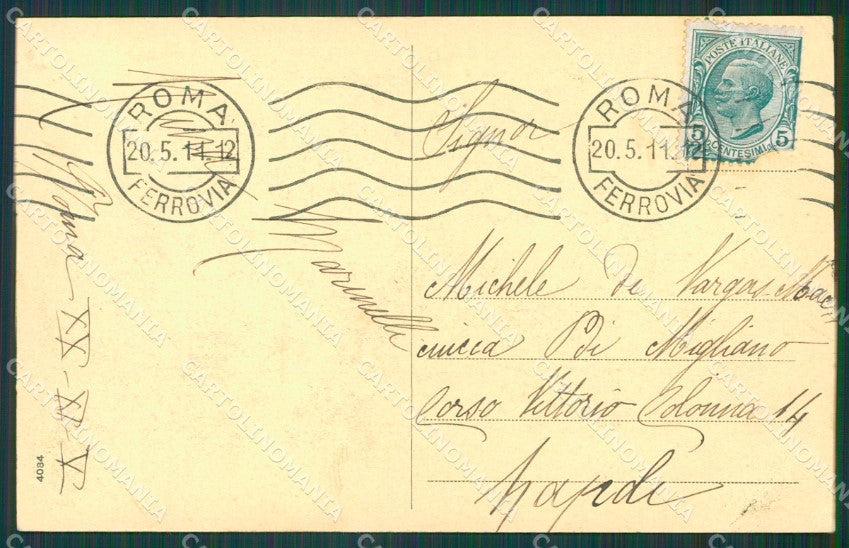 POSTE ITALIANE
5
CENTESIMI
5
ROMA
20.5.11.12
FERROVIA
ROMA
20.5.11.12
FERROVIA
Signor
Michele de Vargas Mac
ciucca Pdi Migliano
Corso Vittorio Colonna 14
Napoli
Marinelli
Roma - XX - V
4084
CARTOLINOMANIA